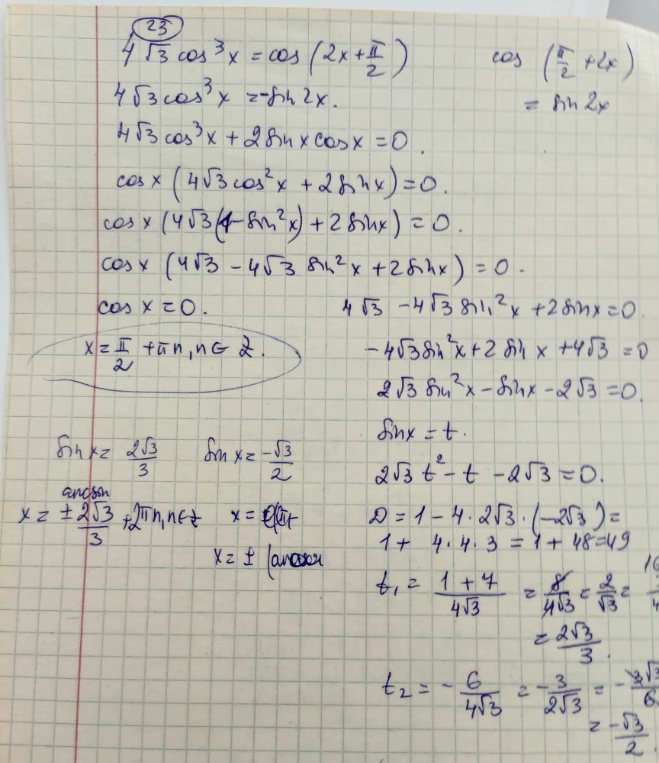 23
4√3 cos³x = cos (2x + π/2)
cos (π/2 + 2x)
= sin 2x
4√3 cos³x = -sin 2x.
4√3 cos³x + 2 sin x cos x = 0.
cos x (4√3 cos²x + 2 sin x) = 0.
cos x (4√3 (1 - sin²x) + 2 sin x) = 0.
cos x (4√3 - 4√3 sin²x + 2 sin x) = 0.
cos x = 0.
x = π/2 + πn, n ∈ Z.
4√3 - 4√3 sin²x + 2 sin x = 0.
-4√3 sin²x + 2 sin x + 4√3 = 0
2√3 sin²x - sin x - 2√3 = 0.
sin x = t.
2√3 t² - t - 2√3 = 0.
D = 1 - 4 · 2√3 · (-2√3) =
1 + 4 · 4 · 3 = 1 + 48 = 49
t₁ = (1 + 7)/(4√3) = 8/(4√3) = 2/√3 =
= 2√3/3.
t₂ = -6/(4√3) = -3/(2√3) = -3√3/6
= -√3/2.
sin x = 2√3/3
sin x = -√3/2
x = ± arcsin 2√3/3 + 2πn, n ∈ Z
x =
x = ± (arcsin